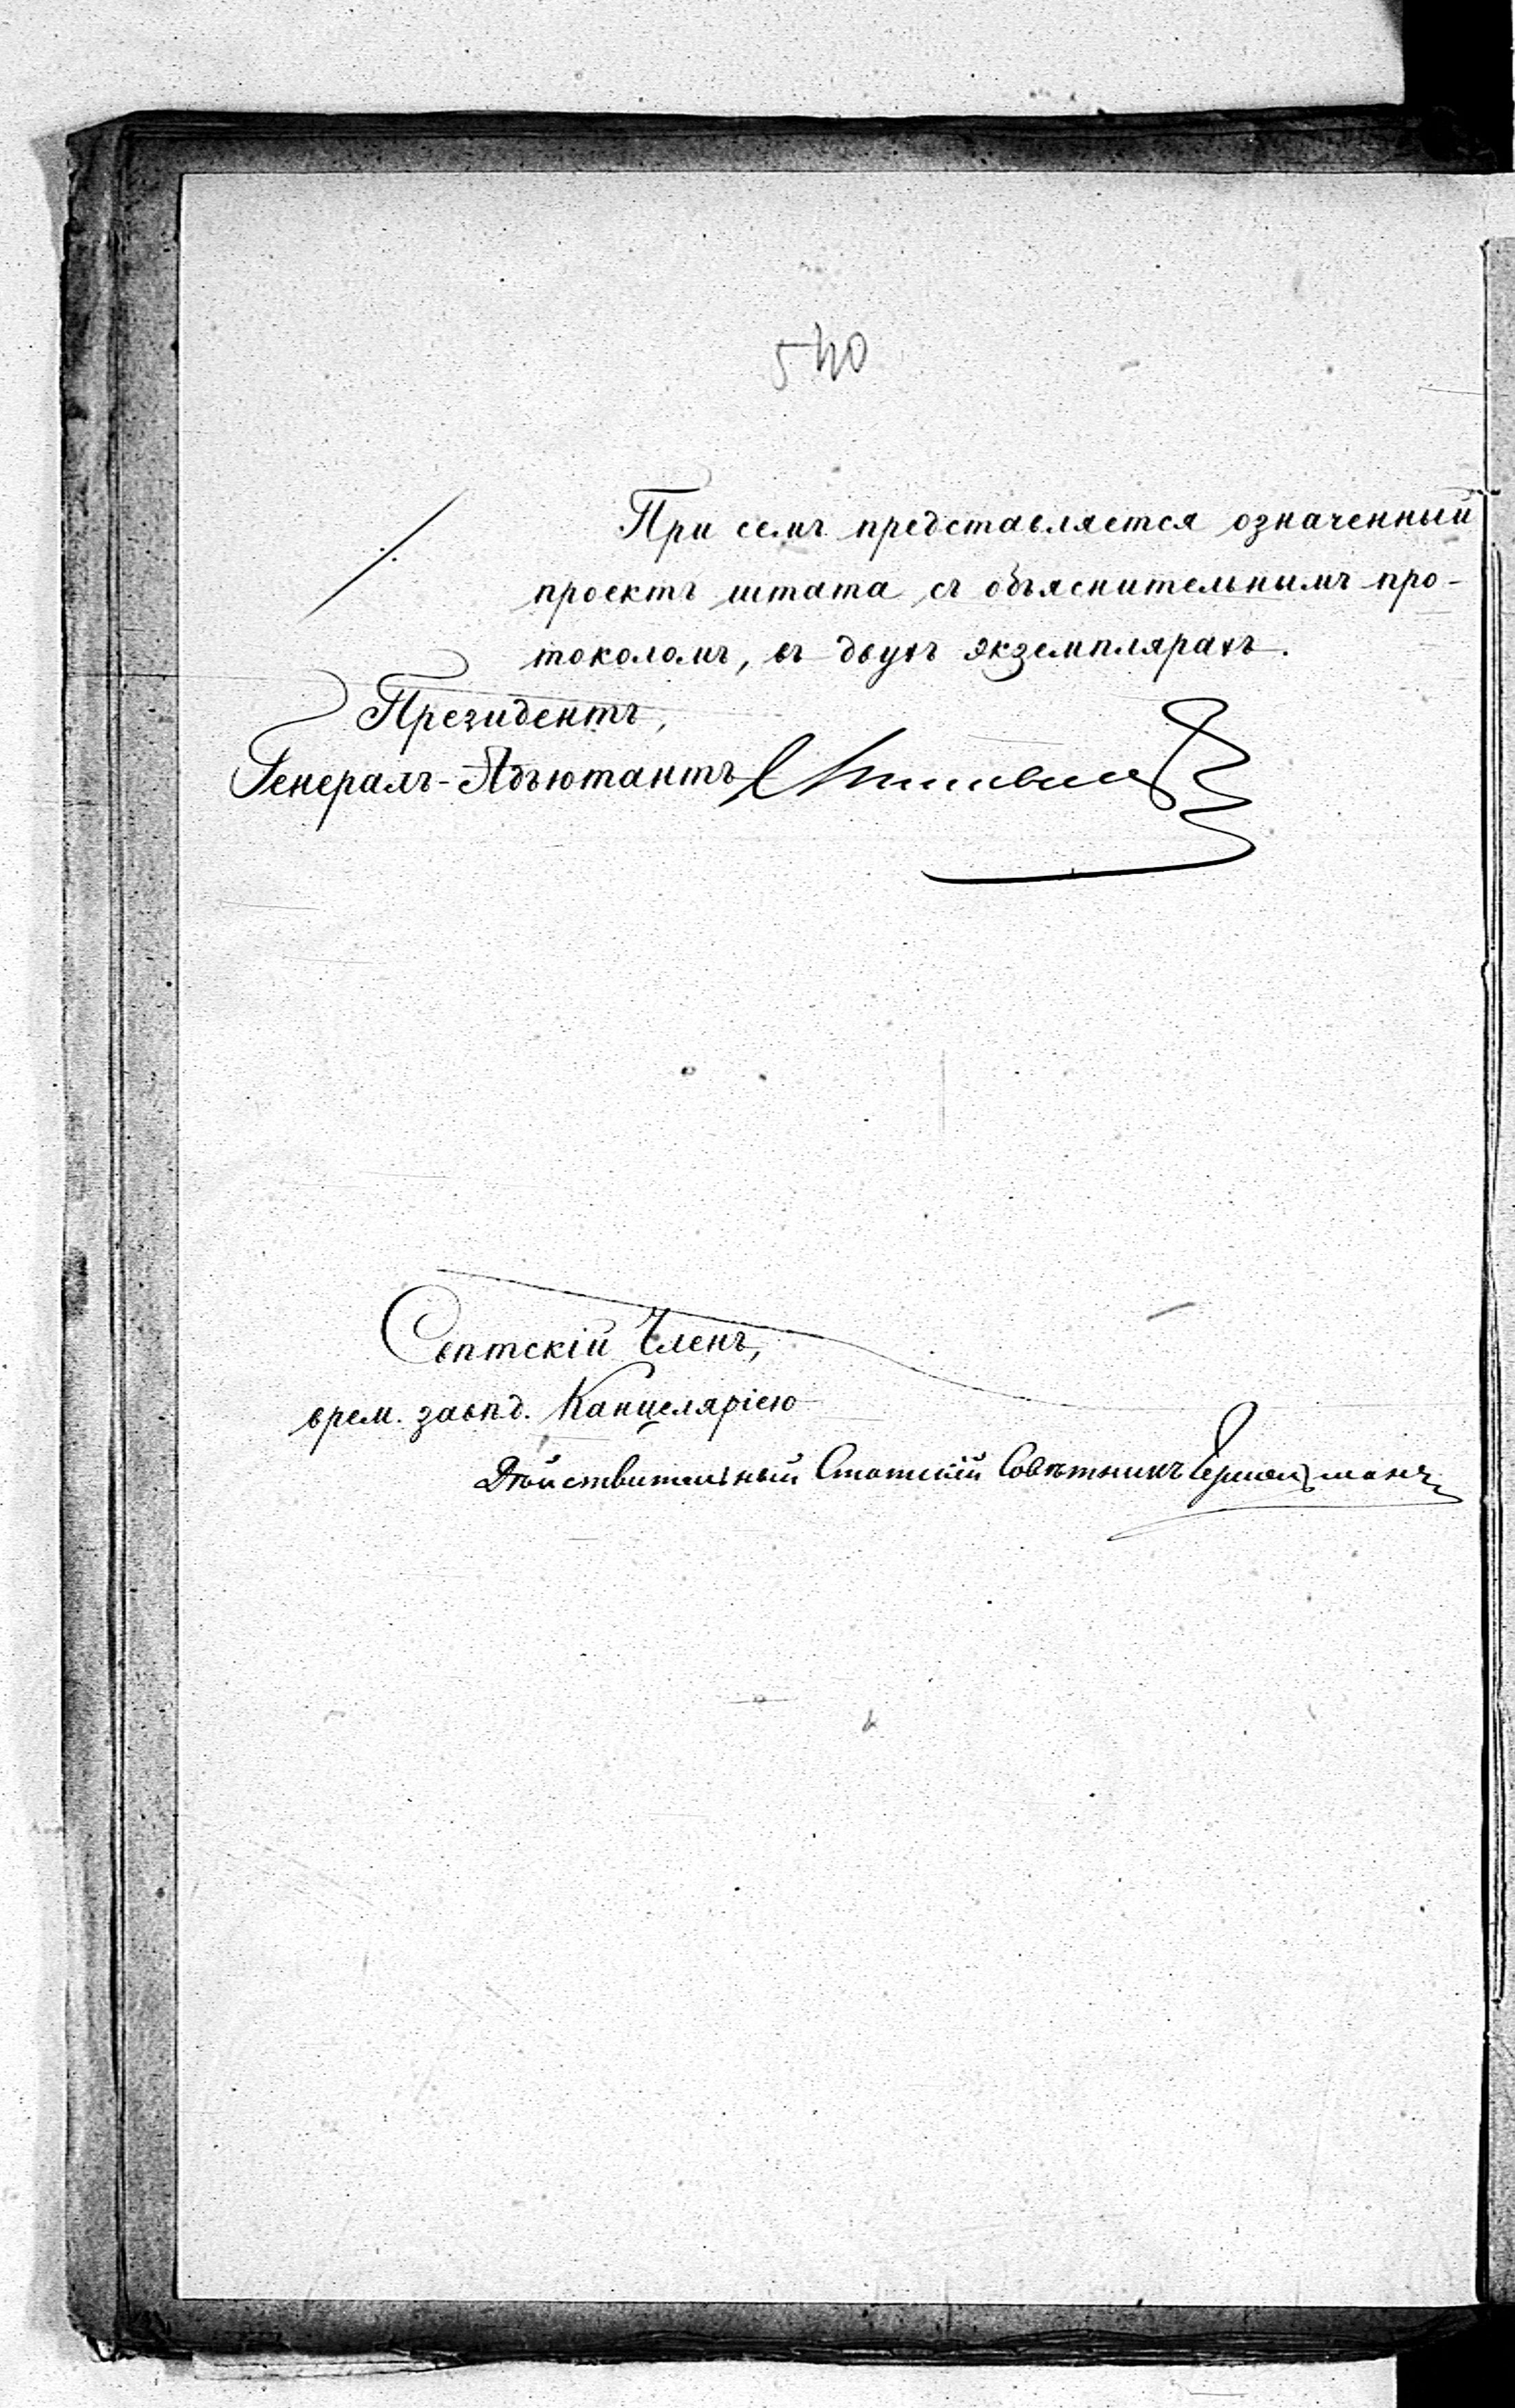 540
При семъ представляется означенный
проектъ штата съ объяснительнымъ про-
токоломъ, въ двухъ экземплярахъ.
Президентъ,
Генералъ-Адъютантъ
Совѣтскій Членъ,
врем. завѣд. Канцеляріею
Дѣйствительный Статскій Совѣтникъ